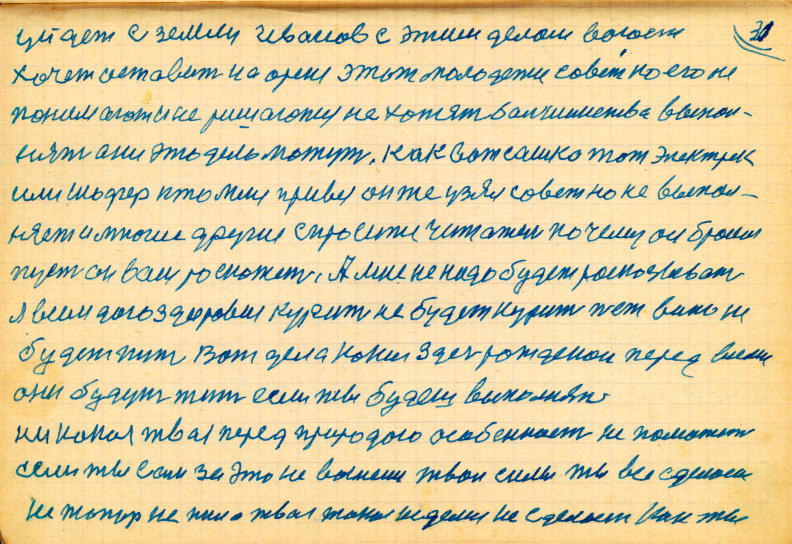 31
уйдет с земли Иванов с этим делом
хочет оставит на этот молодежи совет но его не
понимают и не решаются не хотят выпол-
нят они это дел могут, как вот сашко тот электрек
или шофер кто мне привел он же узял совет но не выпол-
няет и многие другие спросити читател почему он бросил
пуст он вам роскожет, А мне не надо будет росказоват
я всем даю здоровие курит не будет курит пет вино не
будет пит Вот дела какии здес рожденои перед всеми
они будут жит если ты будеш выполнят
ни какая твая перед природою особенност не поможит
если ты сам за это не твои силы ты все сделаеш
не топор не пила твая не сделает Как ты